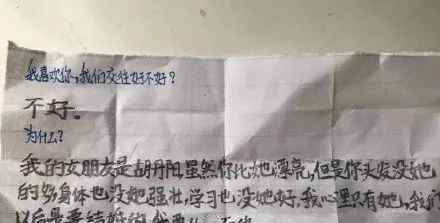 我喜欢你,我们交往好不好?
不好。
为什么?
我的女朋友是胡丹阳,虽然你比她漂亮,但是你头发没她
的多,身体也没她强壮,学习也没她好,我心里只有她,我们
以后是要结婚的